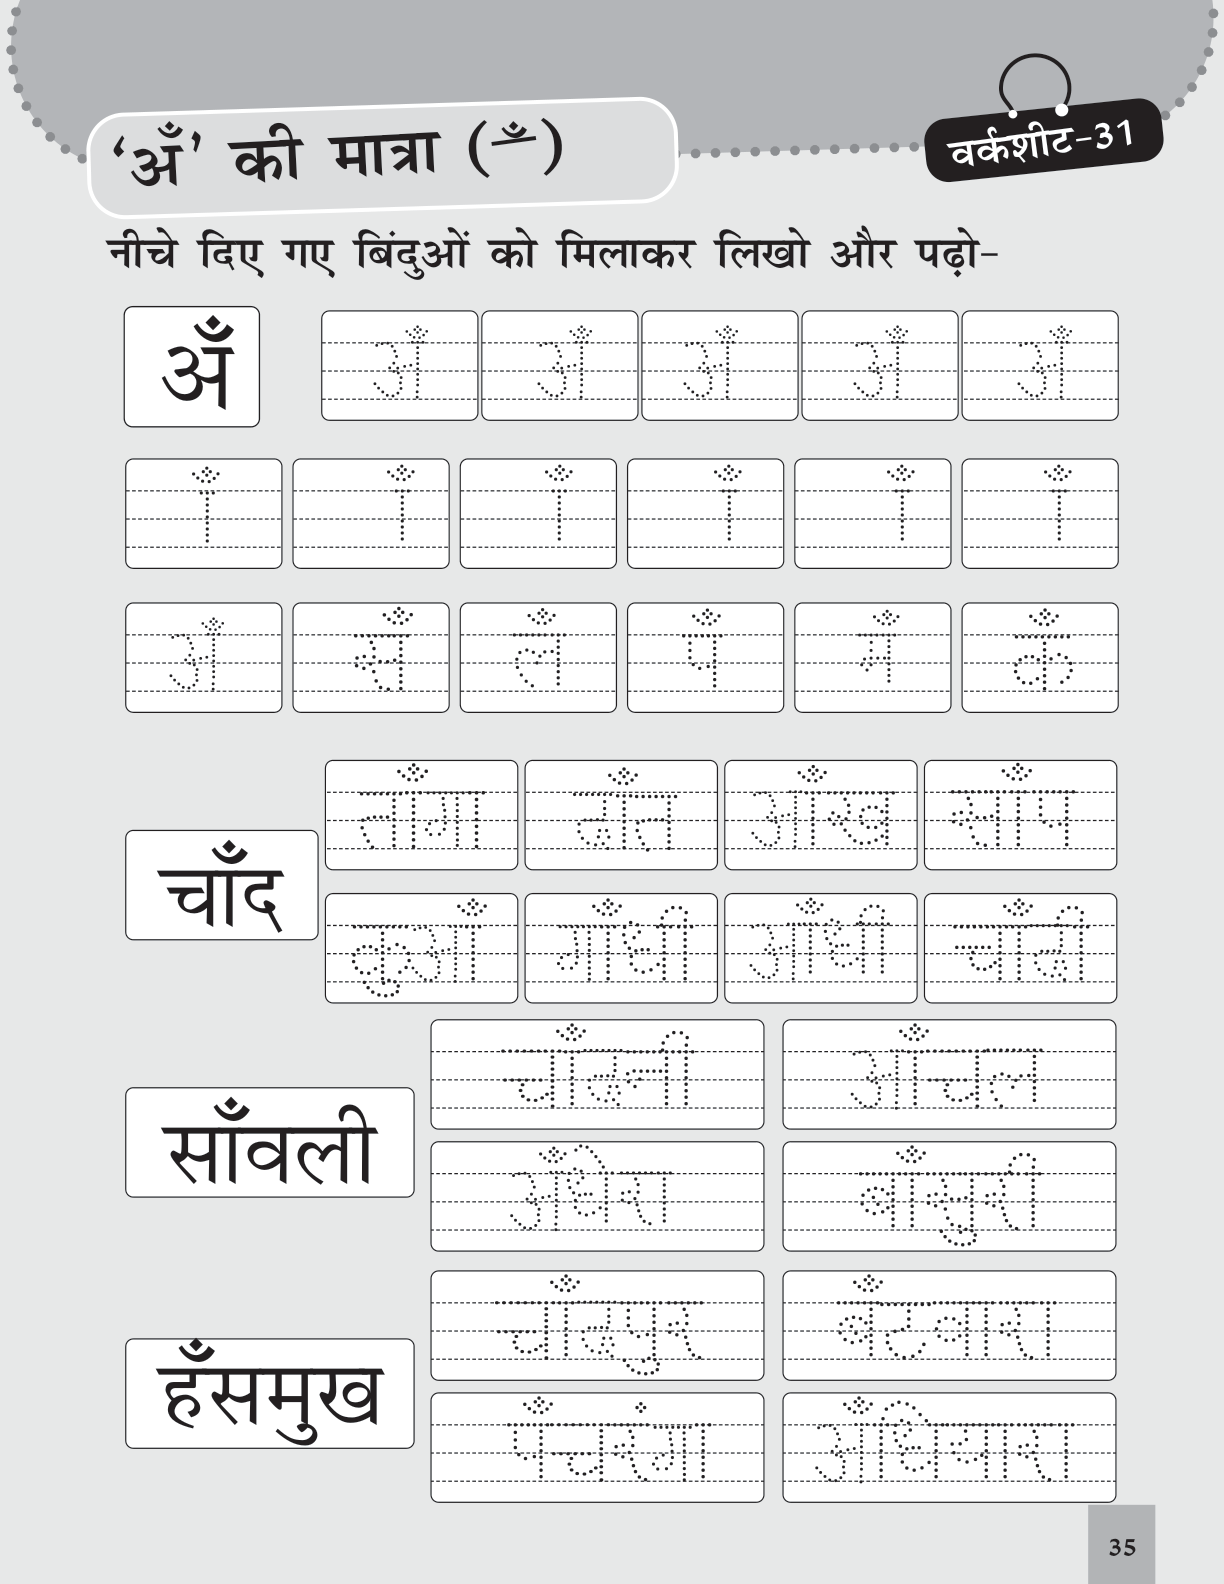 ‘अँ’ की मात्रा (ँ)
वर्कशीट-31
नीचे दिए गए बिंदुओं को मिलाकर लिखो और पढ़ो-
अँ अँ अँ अँ अँ अँ
ाँ ाँ ाँ ाँ ाँ ाँ
अँ पँ कँ
ताँगा दाँत आँख साँप
चाँद
कुआँ आँधी चाँदी
चाँदनी आँचल
साँवली
अँधेरा बाँसुरी
चाँदपुर बँटवारा
हँसमुख
पँचरंगा अँधियारा
35